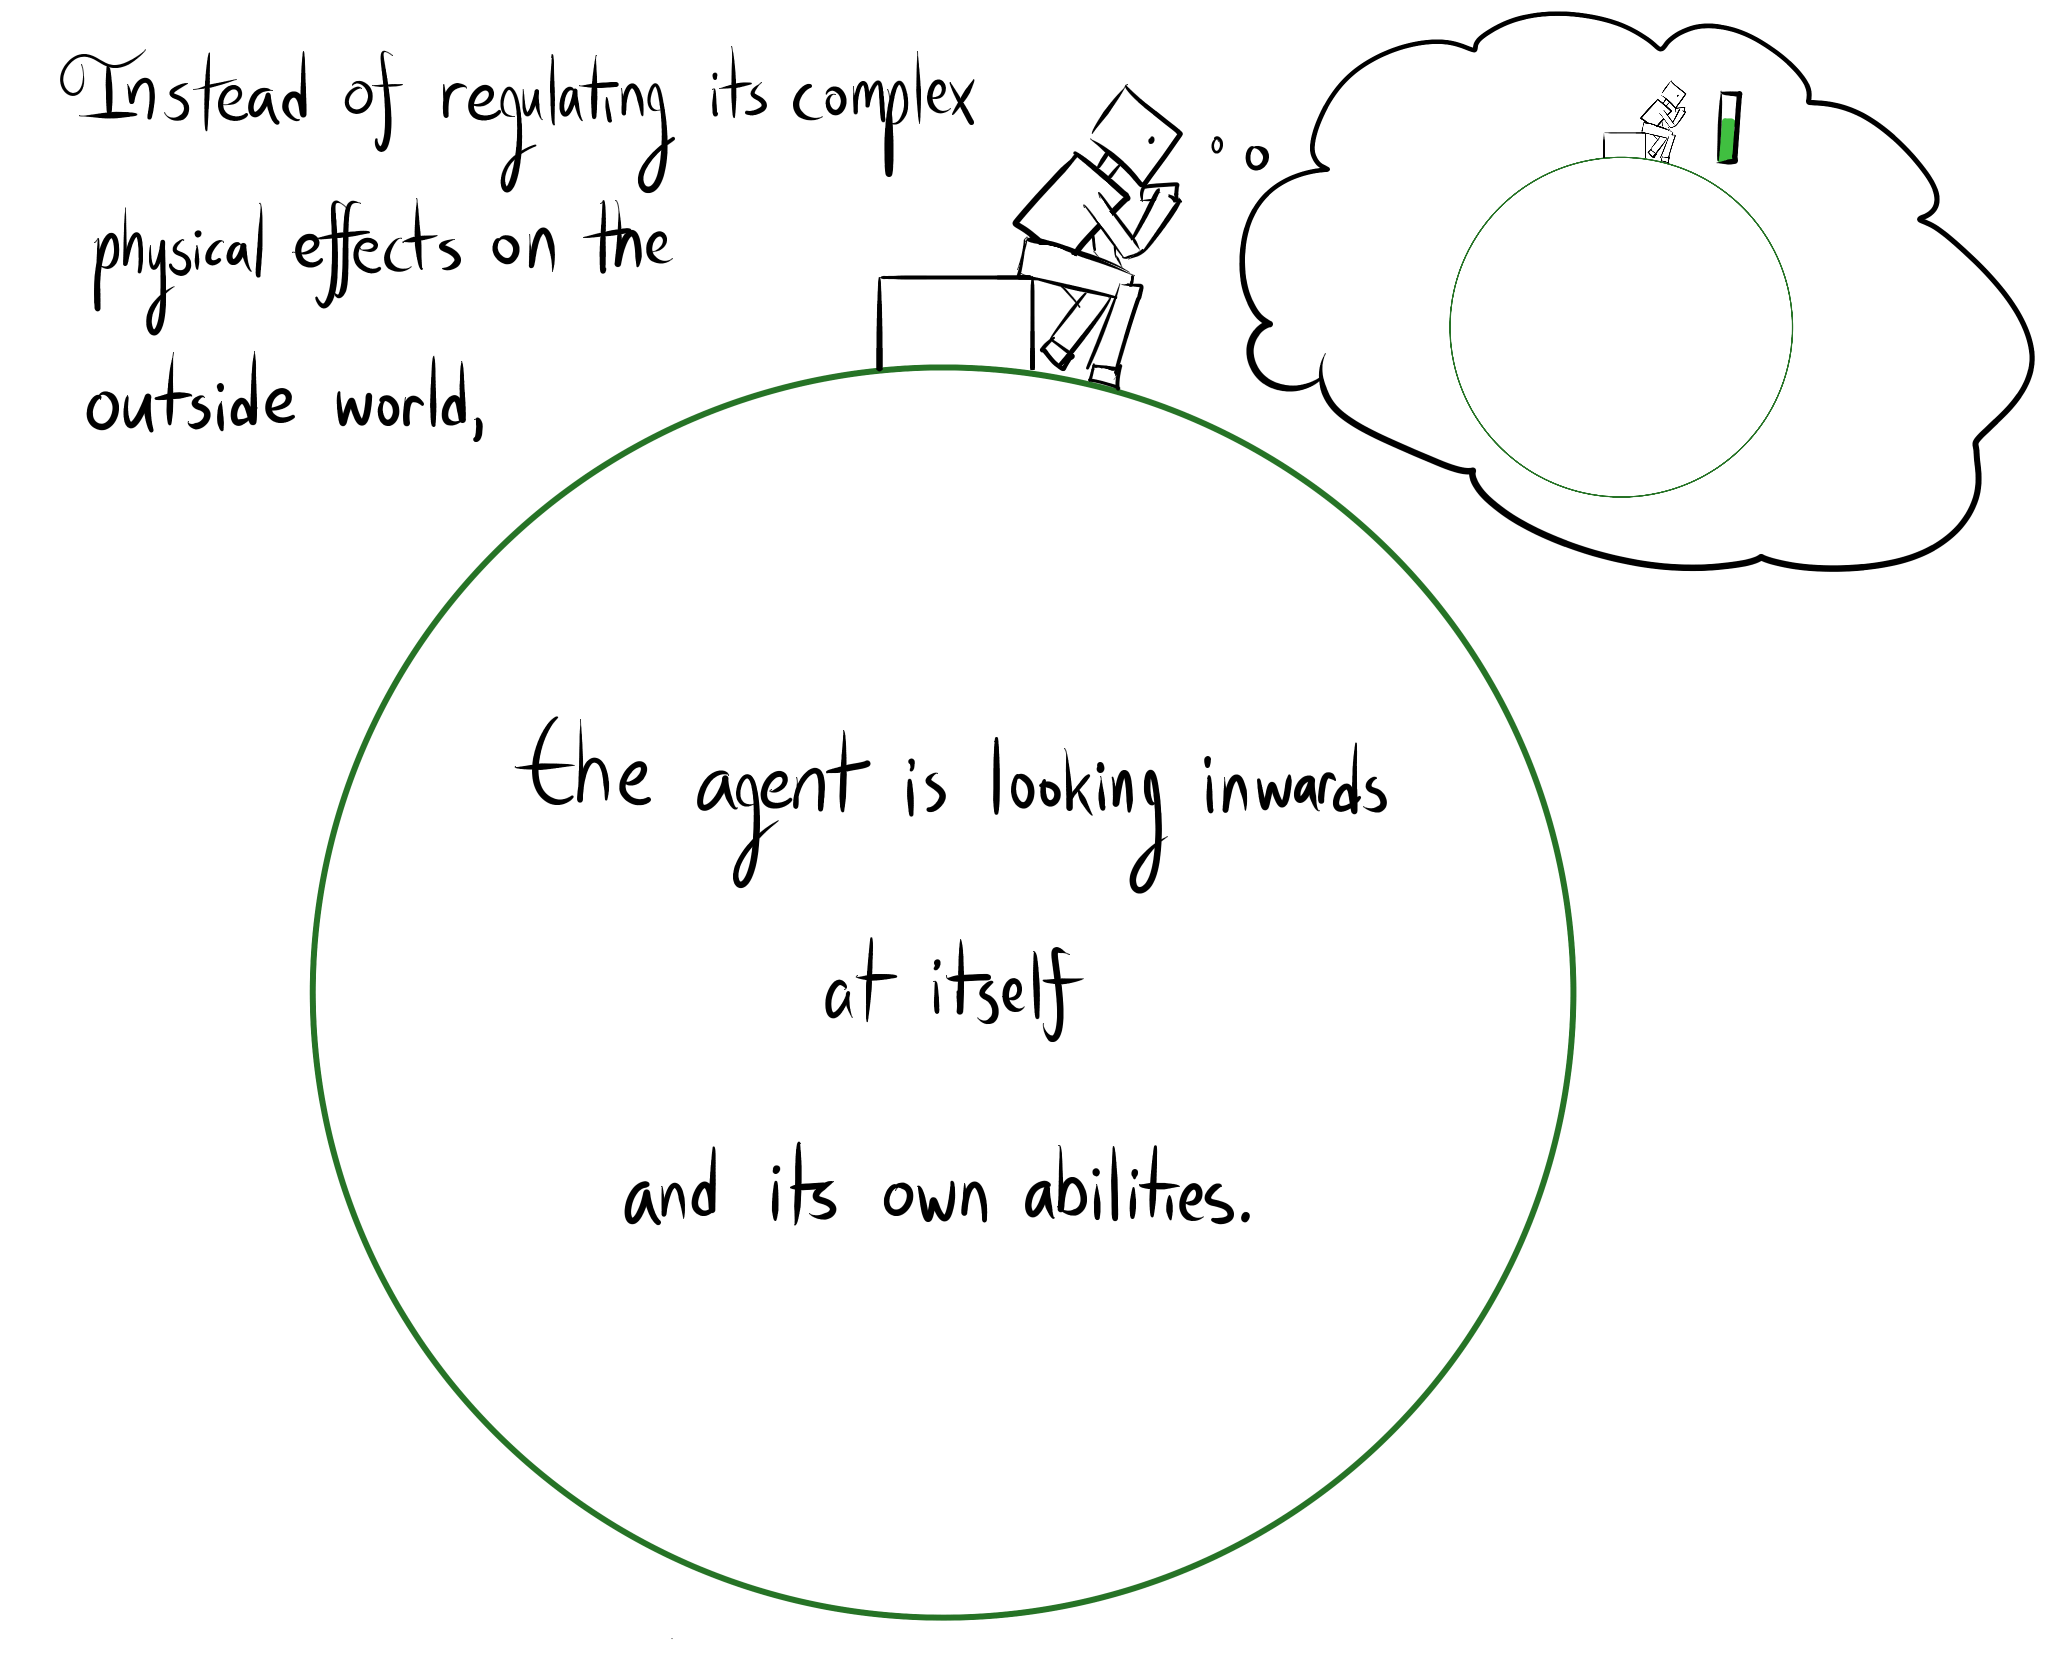 Instead of regulating its complex
physical effects on the
outside world,
the agent is looking inwards
at itself
and its own abilities.